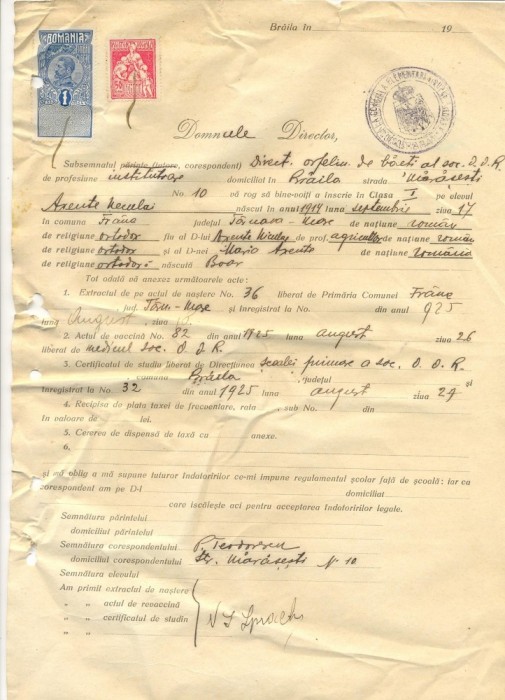 Brăila în 19
ROMANIA
1
Domnule Director,
Subsemnatul părinte (tutore, corespondent) Direct. orfelin. de băeți al soc. O.O.R.
de profesiune institutoare domiciliat în Brăila strada Mărăsești
No. 10 vă rog să bine-voiți a înscrie în Clasa I pe elevul
Arsente Neculai născut în anul 1914 luna septembrie ziua 17
în comuna Frâna județul Târnava-Mare de națiune român
de religiune ortodox fiu al D-lui Arsente Niculae de prof. agricultor de națiune român
de religiune ortodox și al D-nei Maria Arsente de națiune română
de religiune ortodoxă născută Boar
Tot odată vă anexez următoarele acte :
1. Extractul de pe actul de naștere No. 36 liberat de Primăria Comunei Frâna
jud. Târn-Mare și înregistrat la No. din anul 925
luna August, ziua
2. Actul de vaccină No. 82 din anul 1925 luna august ziua 26
liberat de medicul soc. O.O.R.
3. Certificatul de studia liberat de Direcțiunea școalei primare a soc. O.O.R.
comuna Brăila, județul și
înregistrat la No. 32 din anul 1925 august ziua 27
4. Recipisa de plata taxei de frecventare, rata , sub No. din
în valoare de lei.
5. Cererea de dispensă de taxă cu anexe.
6.
și mă oblig a mă supune tuturor îndatoririlor ce-mi impune regulamentul școlar față de școală: iar ca
corespondent am pe D-l domiciliat
care iscălește aci pentru acceptarea îndatoririlor legale.
Semnătura părintelui
domiciliul părintelui
Semnătura corespondentului P. Teodorescu
domiciliul corespondentului Str. Mărăsești No 10
Semnătura elevului
Am primit extractul de naștere
„ „ actul de revaccină
„ „ certificatul de studin
„ „